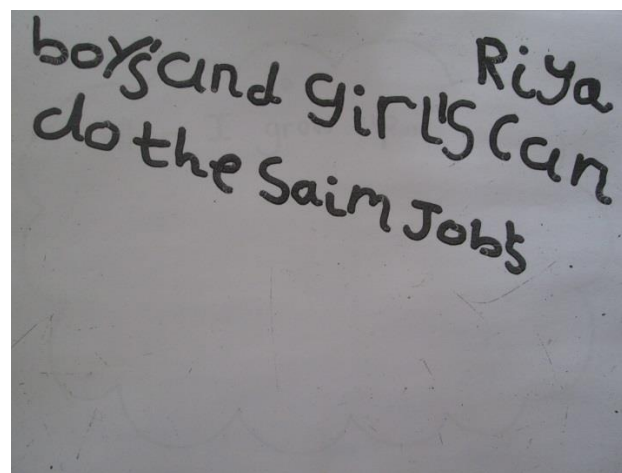 Riya
boy's and girl's can
do the Saim Job's